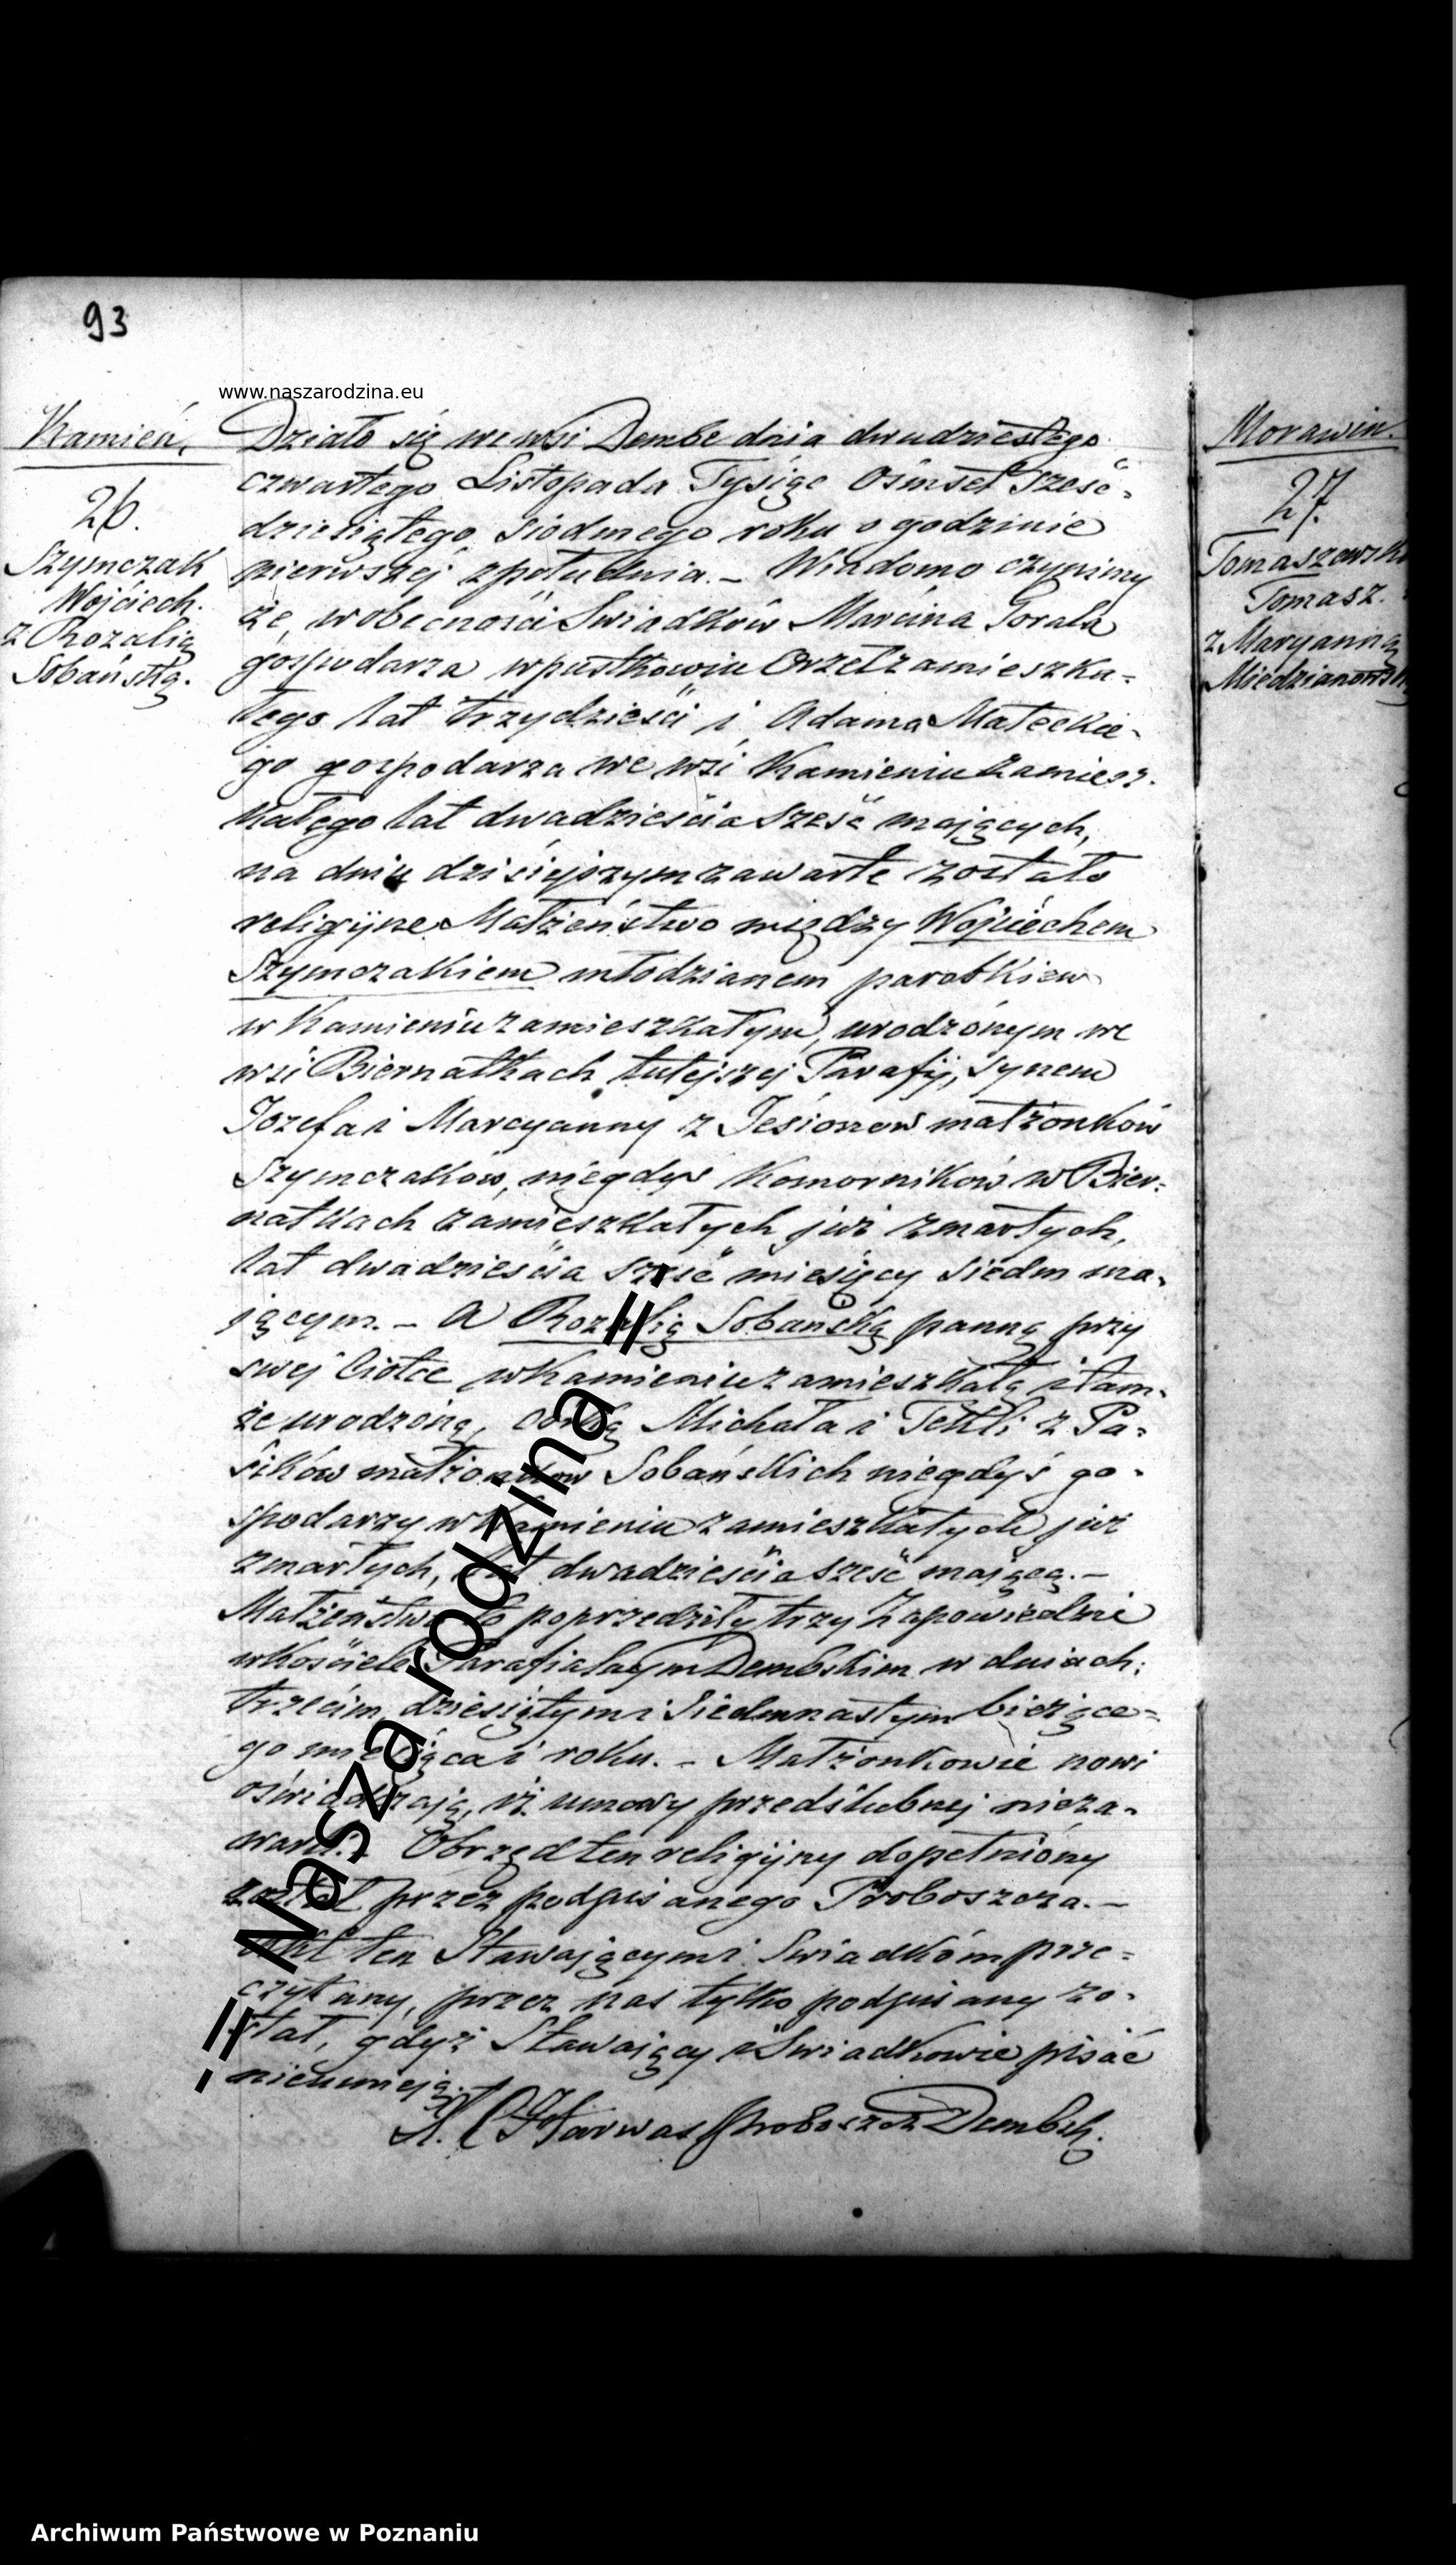 93
www.naszarodzina.eu
Kamień,
26.
Szymczak
Wojciech.
z Rozalią
Sobańską.
Działo się we wsi Dembe dnia dwudziestego
czwartego Listopada Tysiąc Ośmset sześć-
dziesiątego siódmego roku o godzinie
pierwszej z południa. – Wiadomo czynimy
że, w obecności Swiadków Marcina Gorala
gospodarza w pustkowiu Orzeł zamieszka-
łego lat trzydzieści i Adama Małeckie-
go gospodarza we wsi Kamieniu zamiesz-
kałego lat dwadzieścia sześć mających,
na dniu dzisiejszym zawarte zostało
religijne Małżeństwo między Wojciechem
Szymczakiem młodzianem parobkiem
w Kamieniu zamieszkałym, urodzonym we
wsi Biernatkach tutejszej Parafij, synem
Jozefa i Marcyanny z Jesionow małżonków
Szymczaków, niegdyś Komorników w Bier-
natkach zamieszkałych już zmarłych,
lat dwadzieścia sześć miesięcy siedm ma-
jącym. – A Rozalią Sobańską panną przy
swej Ciotce w Kamieniu zamieszkałą i tam-
że urodzoną, córką Michała i Tekli z Pa-
sików małżonków Sobańskich niegdyś go-
spodarzy w Kamieniu zamieszkałych już
zmarłych, lat dwadzieścia sześć mającą. –
Małżeństwo to poprzedziły trzy Zapowiedzie
w Kościele Parafialnym Dembskim w dniach:
trzecim, dziesiątym i Siedmnastym bieżące-
go miesiąca i roku. – Małżonkowie nowi
oświadczają, iż umowy przedślubnej nieza-
warli. Obrzęd ten religijny dopełniony
został przez podpisanego Proboszcza. –
Akt ten Stawającym i Swiadkóm prze-
czytany, przez nas tylko podpisany zo-
stał, gdyż Stawający i Swiadkowie pisać
nieumieją.
X. Harwas Proboszcz Dembsk.
Morawin.
27.
Tomaszewsk
Tomasz.
z Maryanną
Miedzianowsk
-= Nasza rodzina =-
Archiwum Państwowe w Poznaniu